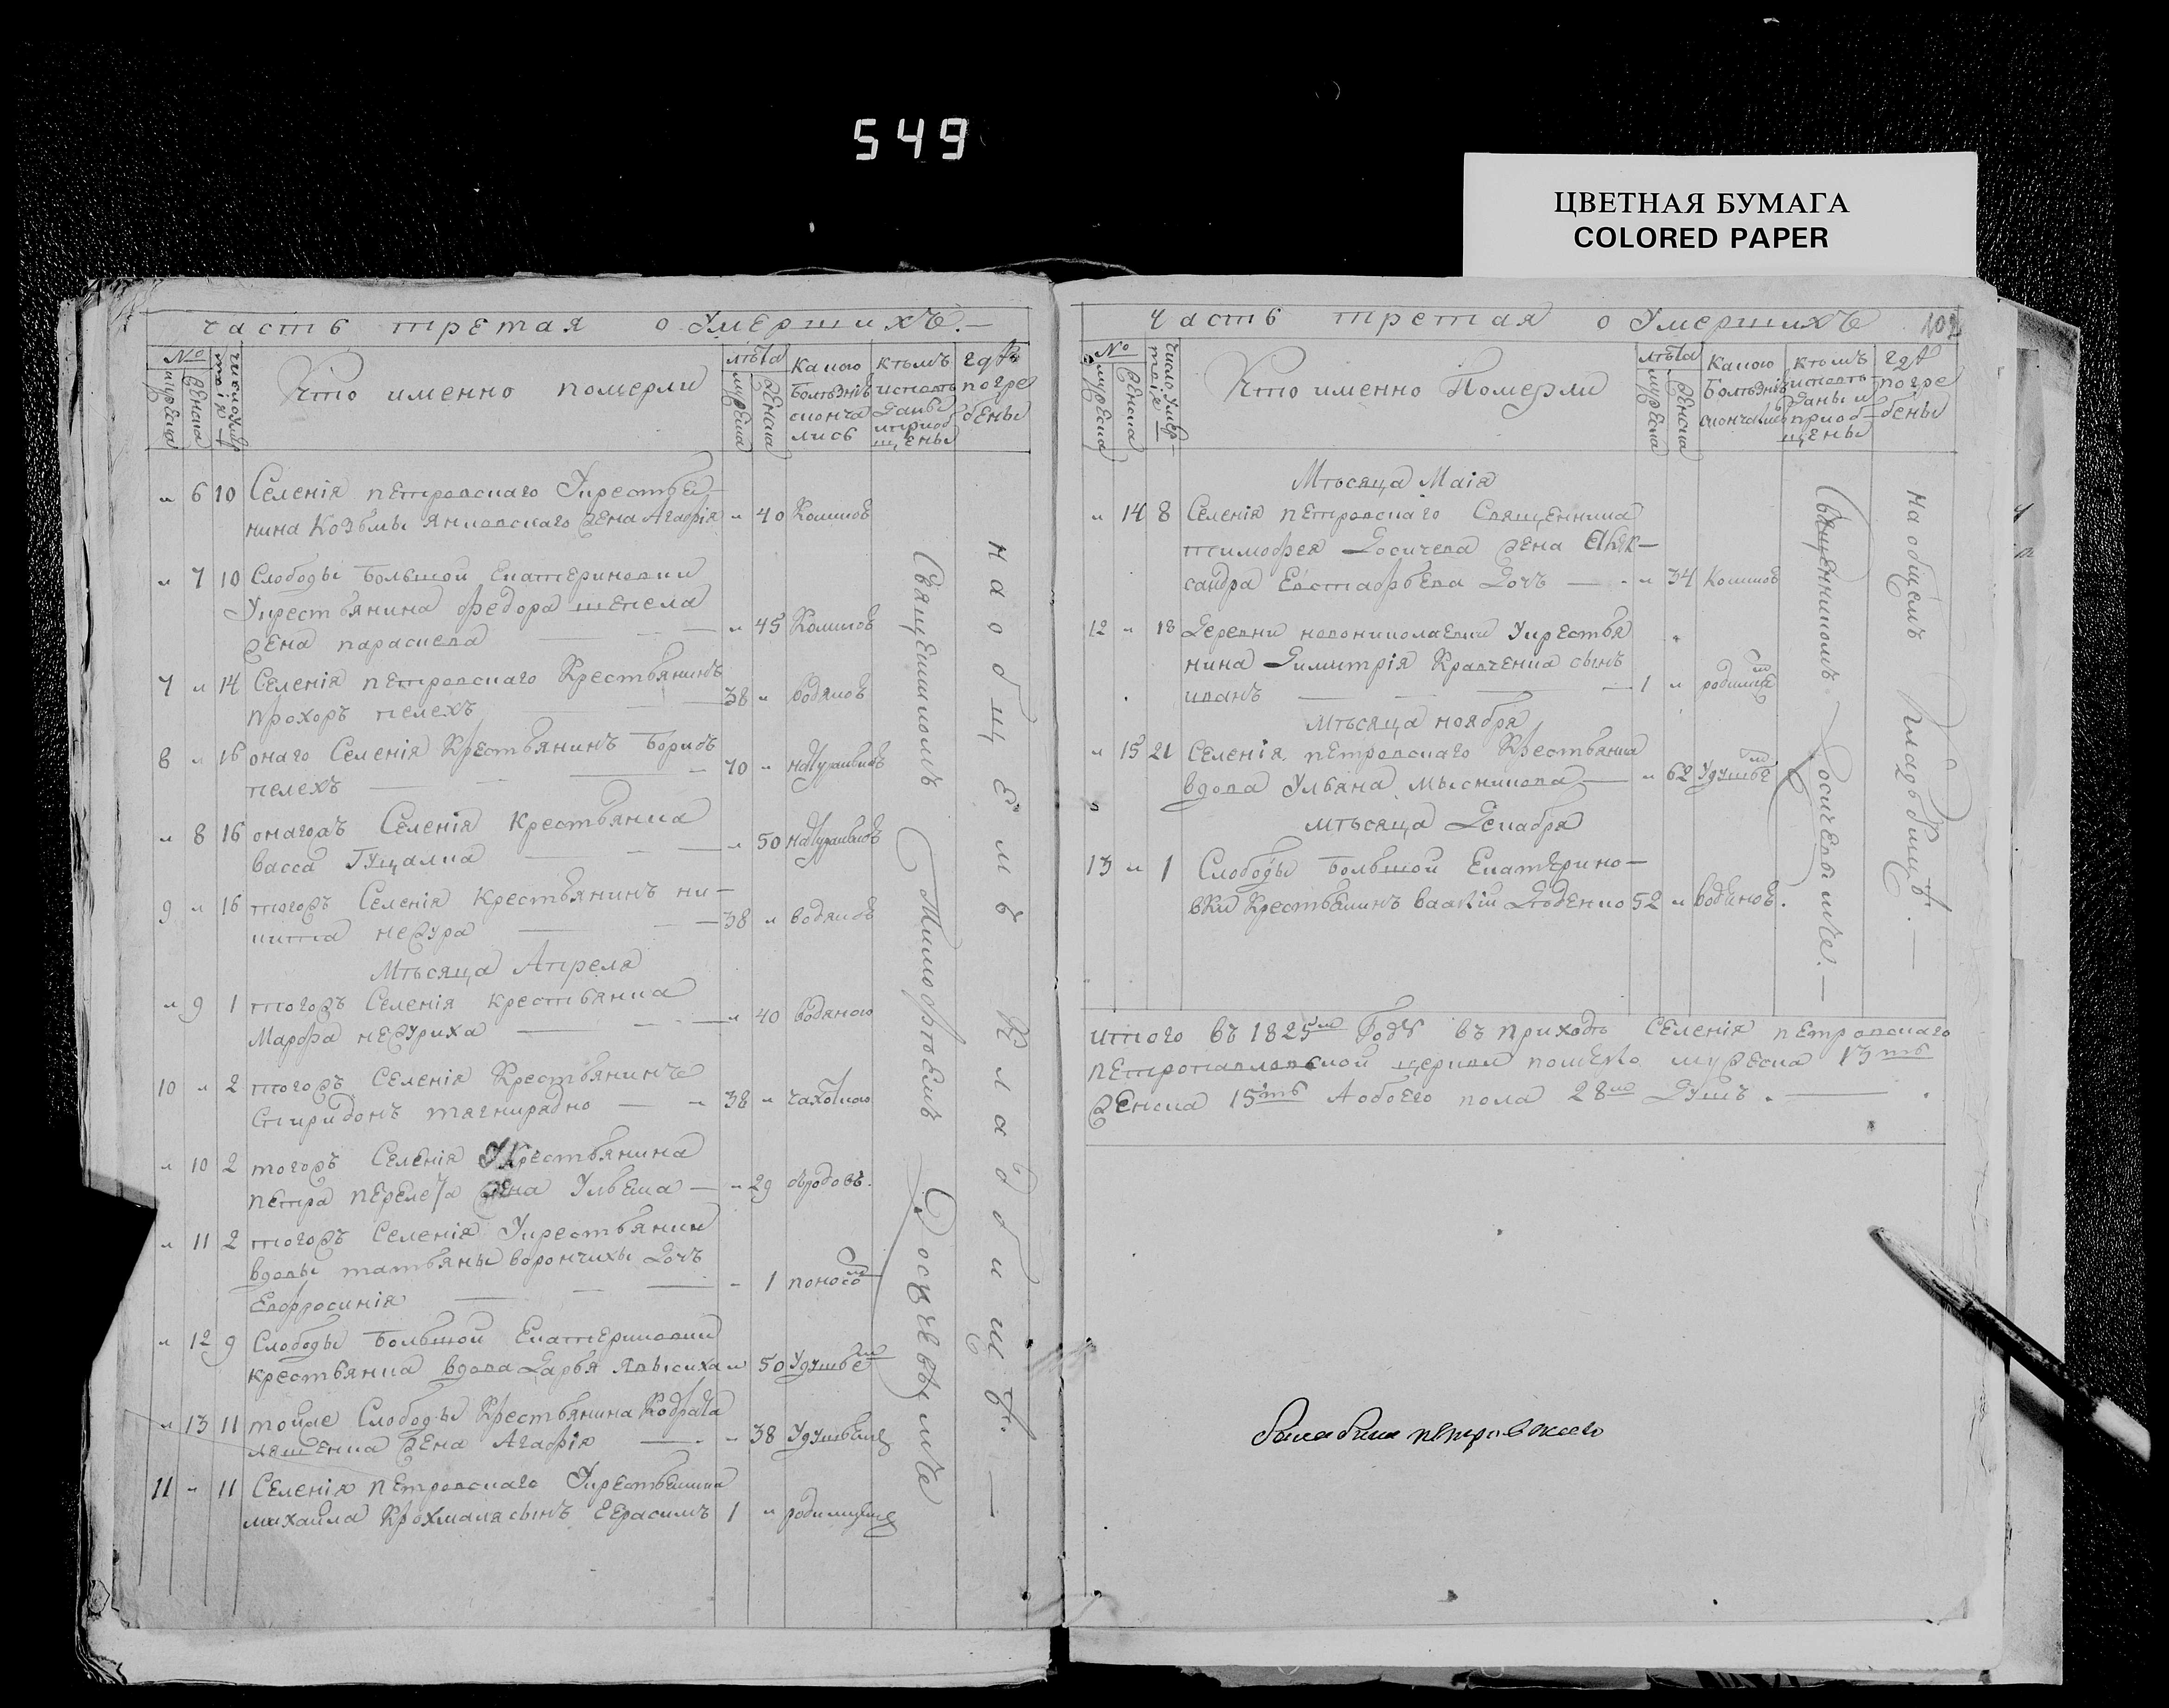 549
ЦВЕТНАЯ БУМАГА
COLORED PAPER
часть третая о умершихъ.
№ мужеска женска
число умер
Кто именно померли
лѣта мужеска женска
какою болѣзнію скончались
кѣмъ исповѣданы и приобщены
гдѣ погребены
" 6 10 Селенія петровскаго Крестья-
нина Козьмы янковскаго жена Агафія " 40 Кашлѣ
" 7 10 Слободы большой Екатериновки
Крестьянина федора шепела
жена параскева — " 45 Кашлѣ
7 " 14 Селенія петровскаго Крестьянинъ
прохоръ пелехъ — 38 " водянов
8 " 16 онаго Селенія Крестьянинъ борисъ
пелехъ — 70 " натурально
" 8 16 онагожъ Селенія крестьянка
васса Гуцалка — " 50 натурально
9 " 16 тогожъ Селенія крестьянинъ ни-
кита нежура — 38 " водянов
Мѣсяца Апреля
" 9 1 тогожъ Селенія крестьянка
Марфа нежуриха — " 40 водяною
10 " 2 тогожъ Селенія Крестьянинъ
Спиридонъ тягнирядно — " 38 " чахоткою
" 10 2 тогожъ Селенія Крестьянина
петра жена Ульяна — " 29 ородовъ.
" 11 2 тогожъ Селенія Крестьянки
вдовы татьяны ворончихы дочь
Евфросинія — " 1 поносо
" 12 9 Слободы большой Екатериновки
крестьянка вдова Дарья " 50 Удушье
" 13 11 тойже Слободы Крестьянина Кодрата
ляшенка жена Агафія — " 38 Удушьемъ
11 " 11 Селенія петровскаго Крестьянина
михайла Крохмаля сынъ Герасимъ 1 " родимцемъ
Священникомъ Тимофѣемъ Досычевымъ
на общемъ Кладбищѣ. —
Часть третая о умершихъ 102
№ мужеска женска
число умер-
Кто именно Померли
лѣта мужеска женска
Какою болѣзнію скончались
кѣмъ исповѣданы и приобщены
гдѣ погребены
Мѣсяца Маія
" 14 8 Селенія петровскаго Священника
тимофея Досичева жена Алек-
сандра Евстафьева Дочь — " 34 Кашлѣ
12 " 18 Деревни новониколаевки Крестья
нина Димитрія Кравченка сынъ
иванъ — 1 " родимце
Мѣсяца ноября
" 15 21 Селенія петровскаго Крестьянка
вдова Ульяна Мысникова — " 62 Удушье
Мѣсяца Декабря
13 " 1 Слободы большой Екатерино-
вки Крестьянинъ 52 " водянов.
Священникомъ Досичевымъ. —
на общемъ кладбищѣ. —
итого въ 1825мъ Году въ приходѣ Селенія петровскаго
петропавловской церкви померло мужеска 13ть
женска 15ть А обоего пола 28мъ Душъ. —
балабина петровскаго